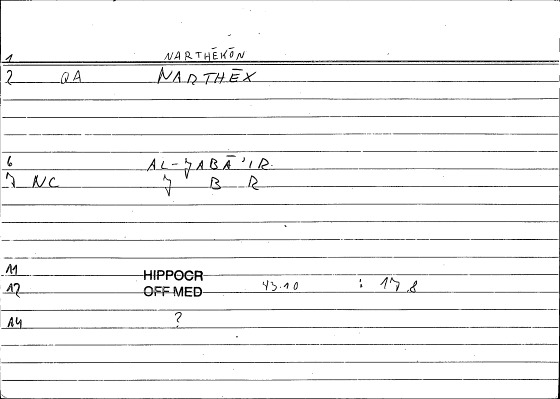 1 NARTHĒKŌN
2 QA NARTHĒX
6 AL-JABĀ'IR
7 NC J B R
11 HIPPOCR
12 OFF MED 43.10 : 17,8
14 ?